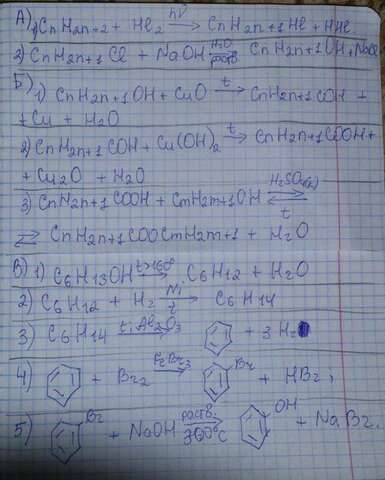 А) 1) CnH2n+2 + Hl2 hν→ CnH2n+1Hl + HHl
2) CnH2n+1Cl + NaOH H2O раств.→ CnH2n+1OH + NaCl
Б) 1) CnH2n+1OH + CuO t→ CnH2n+1COH +
+ Cu + H2O
2) CnH2n+1COH + Cu(OH)2 t→ CnH2n+1COOH +
+ Cu2O + H2O
3) CnH2n+1COOH + CmH2m+1OH H2SO4(к) t ⇄
⇄ CnH2n+1COOCmH2m+1 + H2O
в) 1) C6H13OH t>160° → C6H12 + H2O
2) C6H12 + H2 Ni t→ C6H14
3) C6H14 t; Al2O3→ + 3H2
4) + Br2 FeBr3→ Br + HBr;
5) Br + NaOH раств. 300°C→ OH + NaBr.